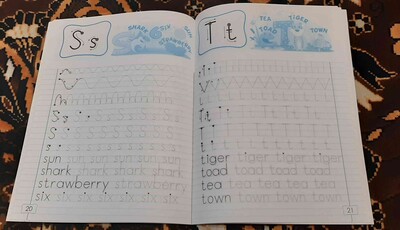 S s
SHARK SIX SUN
STRAWBERRY
S s
S
s
sun sun sun sun sun sun
shark shark shark shark
strawberry strawberry
six six six six six six six
20
T t
TEA TIGER
TOAD TOWN
T t
T
t
tiger tiger tiger tiger
toad toad toad toad
tea tea tea tea tea tea
town town town town
21